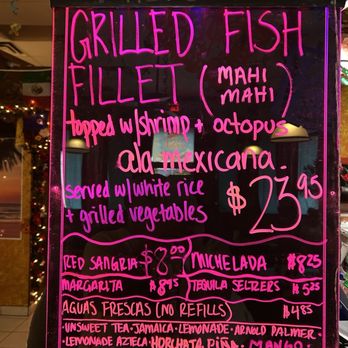 GRILLED FISH
FILLET (MAHI MAHI)
topped w/shrimp + octopus
ala mexicana.
served w/white rice
+ grilled vegetables $23.95
RED SANGRIA $8.00 MICHELADA $8.25
MARGARITA $8.45 TEQUILA SELTZERS $5.25
AGUAS FRESCAS (NO REFILLS) $4.85
UNSWEET TEA · JAMAICA · LEMONADE · ARNOLD PALMER ·
LEMONADE AZTECA · HORCHATA PIÑA · MANGO